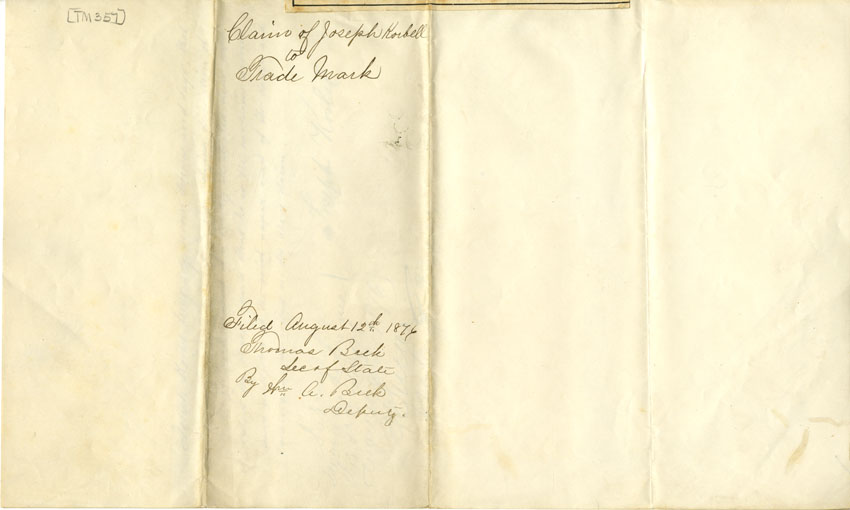 [TM357]
Claim of Joseph Korbell
to
Trade Mark
Filed August 12th 1876
Thomas Beck
Sec of State
By Wm A. Beck
Deputy.